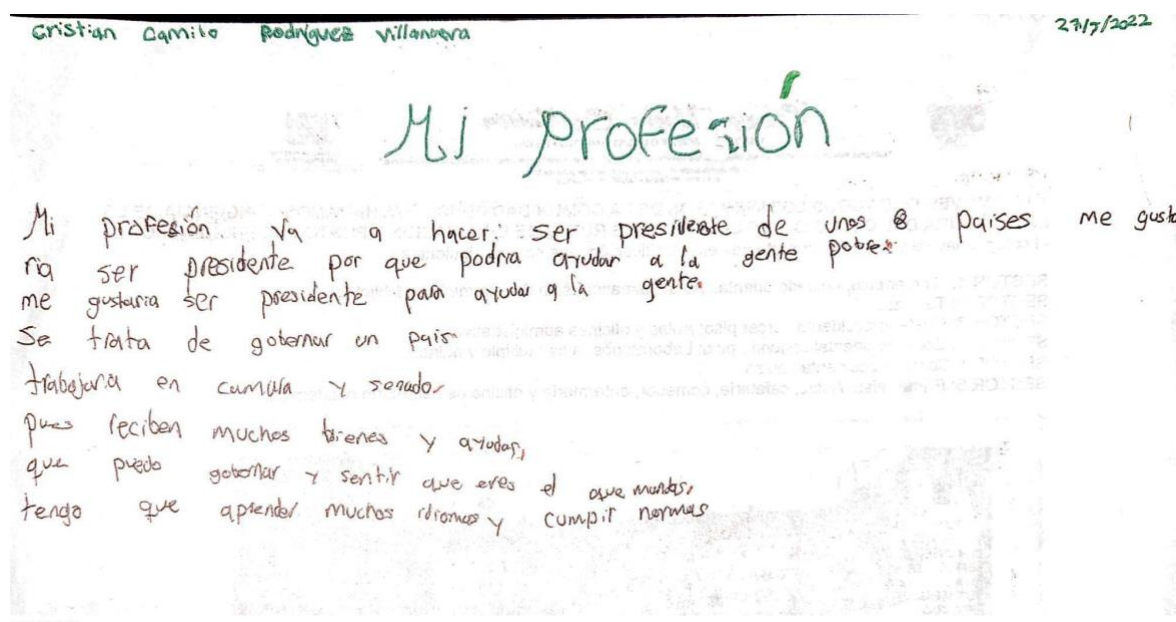 Cristian Camilo Rodriguez Villanueva 27/5/2022
Mi profesión
Mi profesión va a hacer, ser presidente de unos 8 paises me gusta
ria ser presidente por que podria ayudar a la gente pobre.
me gustaria ser presidente para ayudar a la gente.
Se trata de gobernar un pais
trabajaria en y senado
pues reciben muchos bienes y ayudas,
que puedo gobernar y sentir que eres el que mandas,
tengo que aprender muchos idiomas y cumplir normas